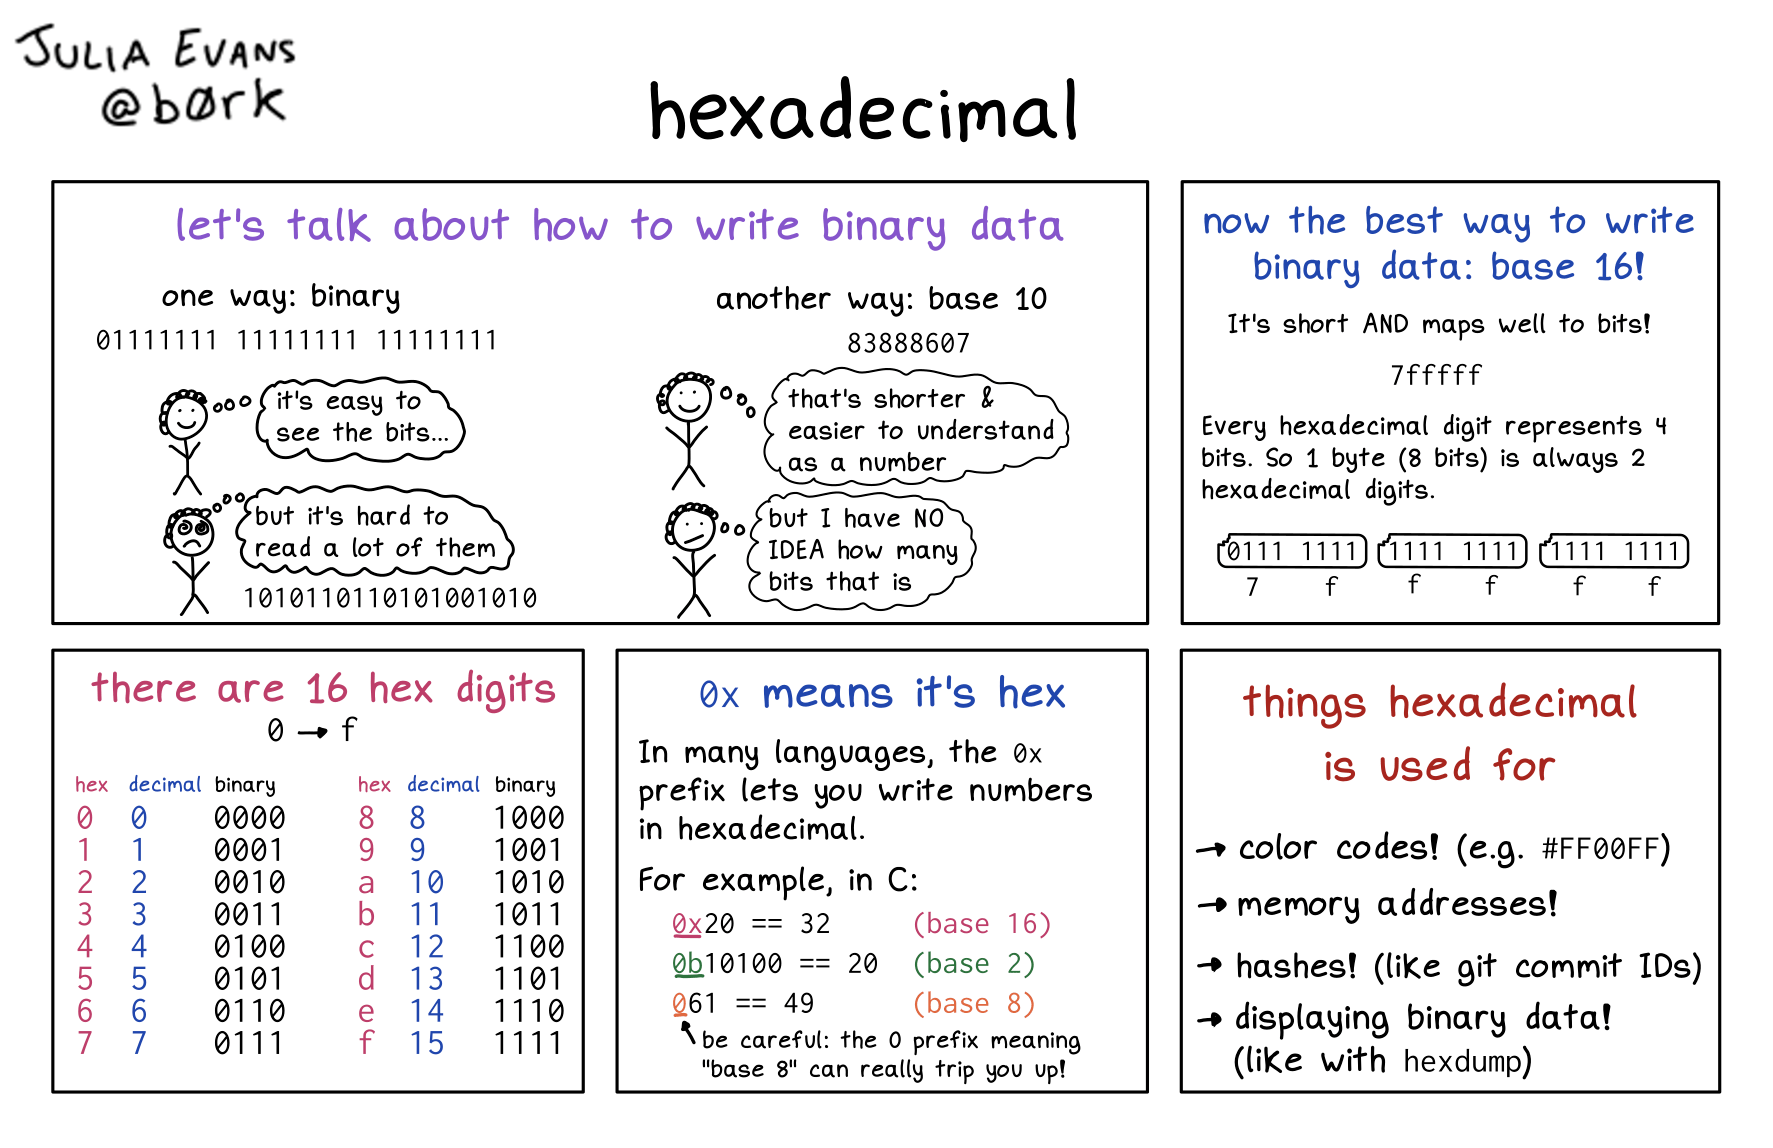 JULIA EVANS
@bØrk
hexadecimal
let's talk about how to write binary data
one way: binary
01111111 11111111 11111111
it's easy to
see the bits...
but it's hard to
read a lot of them
1010110110101001010
another way: base 10
83888607
that's shorter &
easier to understand
as a number
but I have NO
IDEA how many
bits that is
now the best way to write
binary data: base 16!
It's short AND maps well to bits!
7fffff
Every hexadecimal digit represents 4
bits. So 1 byte (8 bits) is always 2
hexadecimal digits.
0111 1111 1111 1111 1111 1111
7 f f f f f
there are 16 hex digits
0 → f
hex decimal binary hex decimal binary
0 0 0000 8 8 1000
1 1 0001 9 9 1001
2 2 0010 a 10 1010
3 3 0011 b 11 1011
4 4 0100 c 12 1100
5 5 0101 d 13 1101
6 6 0110 e 14 1110
7 7 0111 f 15 1111
0x means it's hex
In many languages, the 0x
prefix lets you write numbers
in hexadecimal.
For example, in C:
0x20 == 32 (base 16)
0b10100 == 20 (base 2)
061 == 49 (base 8)
be careful: the 0 prefix meaning
"base 8" can really trip you up!
things hexadecimal
is used for
→ color codes! (e.g. #FF00FF)
→ memory addresses!
→ hashes! (like git commit IDs)
→ displaying binary data!
(like with hexdump)